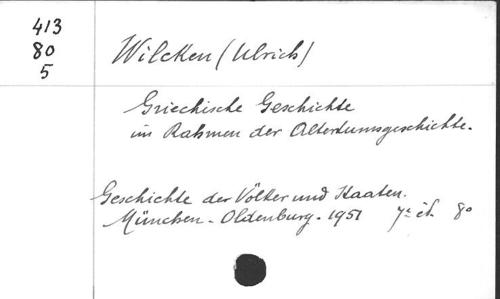 413
80
5
Wilcken (Ulrich)
Griechische Geschichte
im Rahmen der Altertumsgeschichte.
Geschichte der Völker und Staaten.
München - Oldenburg - 1951 7e éd. 8º